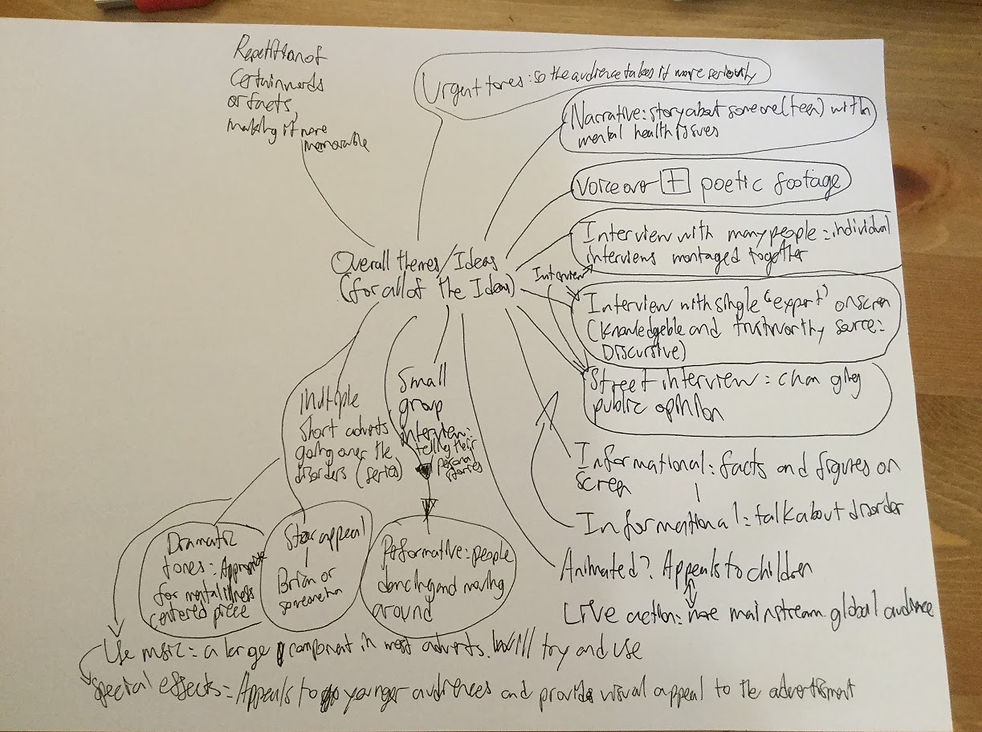 Repetition of
certain words
or facts,
making it more
memorable
Urgent tones: so the audience takes it more seriously
Narrative: story about someone (teen) with
mental health issues
Voiceover + poetic footage
Overall themes / Ideas
(for all of the Ideas)
Interview with many people = individual
interviews montaged together
Interview
Interview with single "expert" on screen
(knowledgeble and trustworthy source =
Discursive)
Street interview: changing
public opinion
Multiple
short adverts
going over the
disorders (series)
Small
group
interview:
telling their
personal
stories
Informational: facts and figures on
screen
Informational = talk about disorder
Animated? Appeals to children
Live action: more mainstream global audience
Dramatic
tones: Appropriate
for mental illness
centered piece
Star appeal
Brian or
someone
Performative: people
dancing and moving
around
Use music = a large component in most adverts. Will try and use
Special effects = Appeals to younger audiences and provide visual appeal to the advertisment